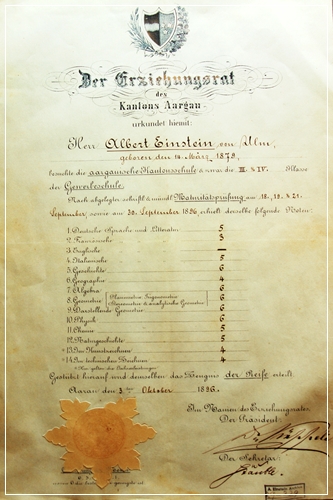 Der Erziehungsrat
des
Kantons Aargau
urkundet hiermit:
Herr Albert Einstein von Ulm,
geboren den 14. März 1879,
besuchte die aargauische Kantonsschule & zwar die III. & IV. Klasse
der Gewerbeschule.
Nach abgelegter schriftl. & mündl. Maturitätsprüfung am 18., 19. & 21.
September, sowie am 30. September 1896, erhielt derselbe folgende Noten:
1. Deutsche Sprache und Litteratur 5
2. Französische 3
3. Englische —
4. Italienische 5
5. Geschichte 6
6. Geographie 4
7. Algebra 6
8. Geometrie Planimetrie, Trigonometrie Stereometrie & analytische Geometrie 6
9. Darstellende Geometrie 6
10. Physik 6
11. Chemie 5
12. Naturgeschichte 5
13. Im Kunstzeichnen 4
14. Im technischen Zeichnen 4
Gestützt hierauf wird demselben das Zeugnis der Reife erteilt.
Aarau den 3ten Oktober 1896.
Im Namen des Erziehungsrates,
Der Präsident:
Der Sekretär: